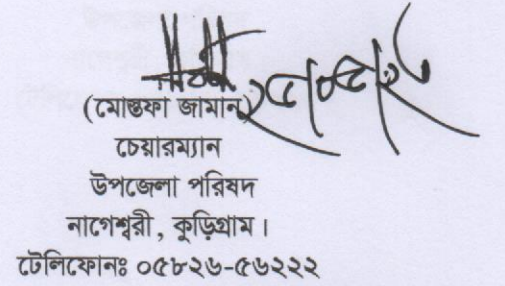 (মোস্তফা জামান)
চেয়ারম্যান
উপজেলা পরিষদ
নাগেশ্বরী, কুড়িগ্রাম।
টেলিফোনঃ ০৫৮২৬-৫৬২২২